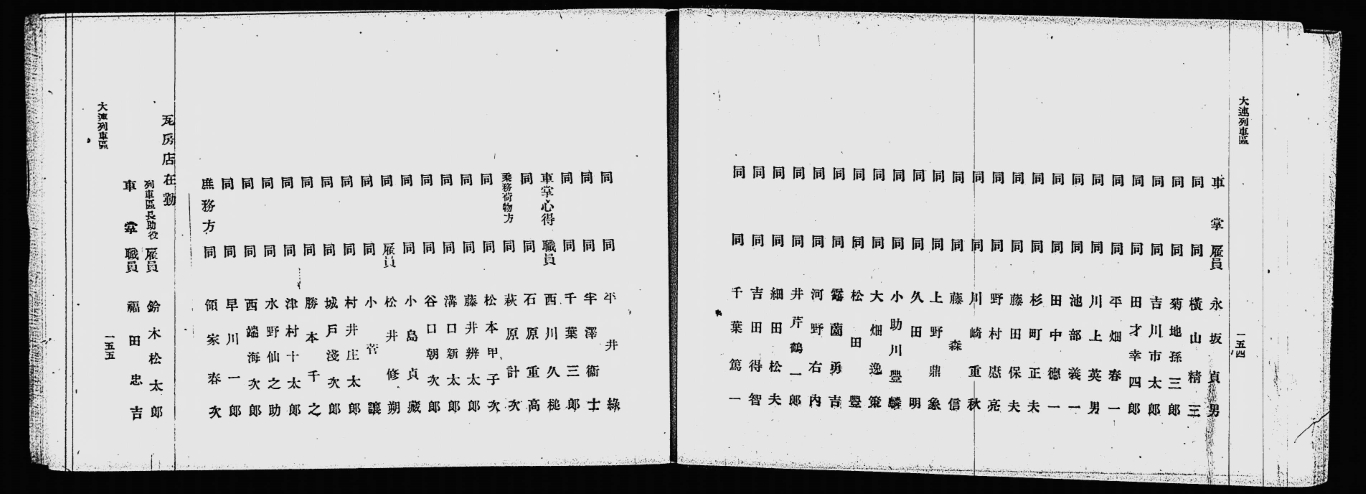 大連列車區
一五四
車掌 雇員 永坂貞男
同 同 横山精三
同 同 菊地孫三郎
同 同 吉川市太郎
同 同 田才幸四郎
同 同 平畑春一
同 同 川上英男
同 同 池部義一
同 同 田中德一
同 同 杉町正夫
同 同 藤田保夫
同 同 野村亮
同 同 川崎重秋
同 同 藤森信
同 同 上野鼎象
同 同 久田明
同 同 小助川豊麟
同 同 大畑逸策
同 同 松田豊
同 同 露薗勇吉
同 同 河野右內
同 同 井芹鶴一郎
同 同 細田松夫
同 同 吉田得智
同 同 千葉篤一
同 同 平井綠
同 同 宇澤衞士
同 同 千葉三郎
車掌心得 職員 西川久槌
同 同 石原重高
乘務荷物方 同 萩原計次
同 同 松本甲子次
同 同 藤井辨太郎
同 同 溝口新太郎
同 同 谷口朝次郎
同 同 小島貞藏
同 雇員 松井修朔
同 同 小菅讓
同 同 村井庄太郎
同 同 城戸淺次郎
同 同 勝本千之
同 同 津村十太郎
同 同 水野仙之助
同 同 西端海次郎
同 同 早川一郎
庶務方 同 領家春次
瓦房店在勤
列車區長助役 雇員 鈴木松太郎
車掌 職員 福田忠吉
大連列車區
一五五